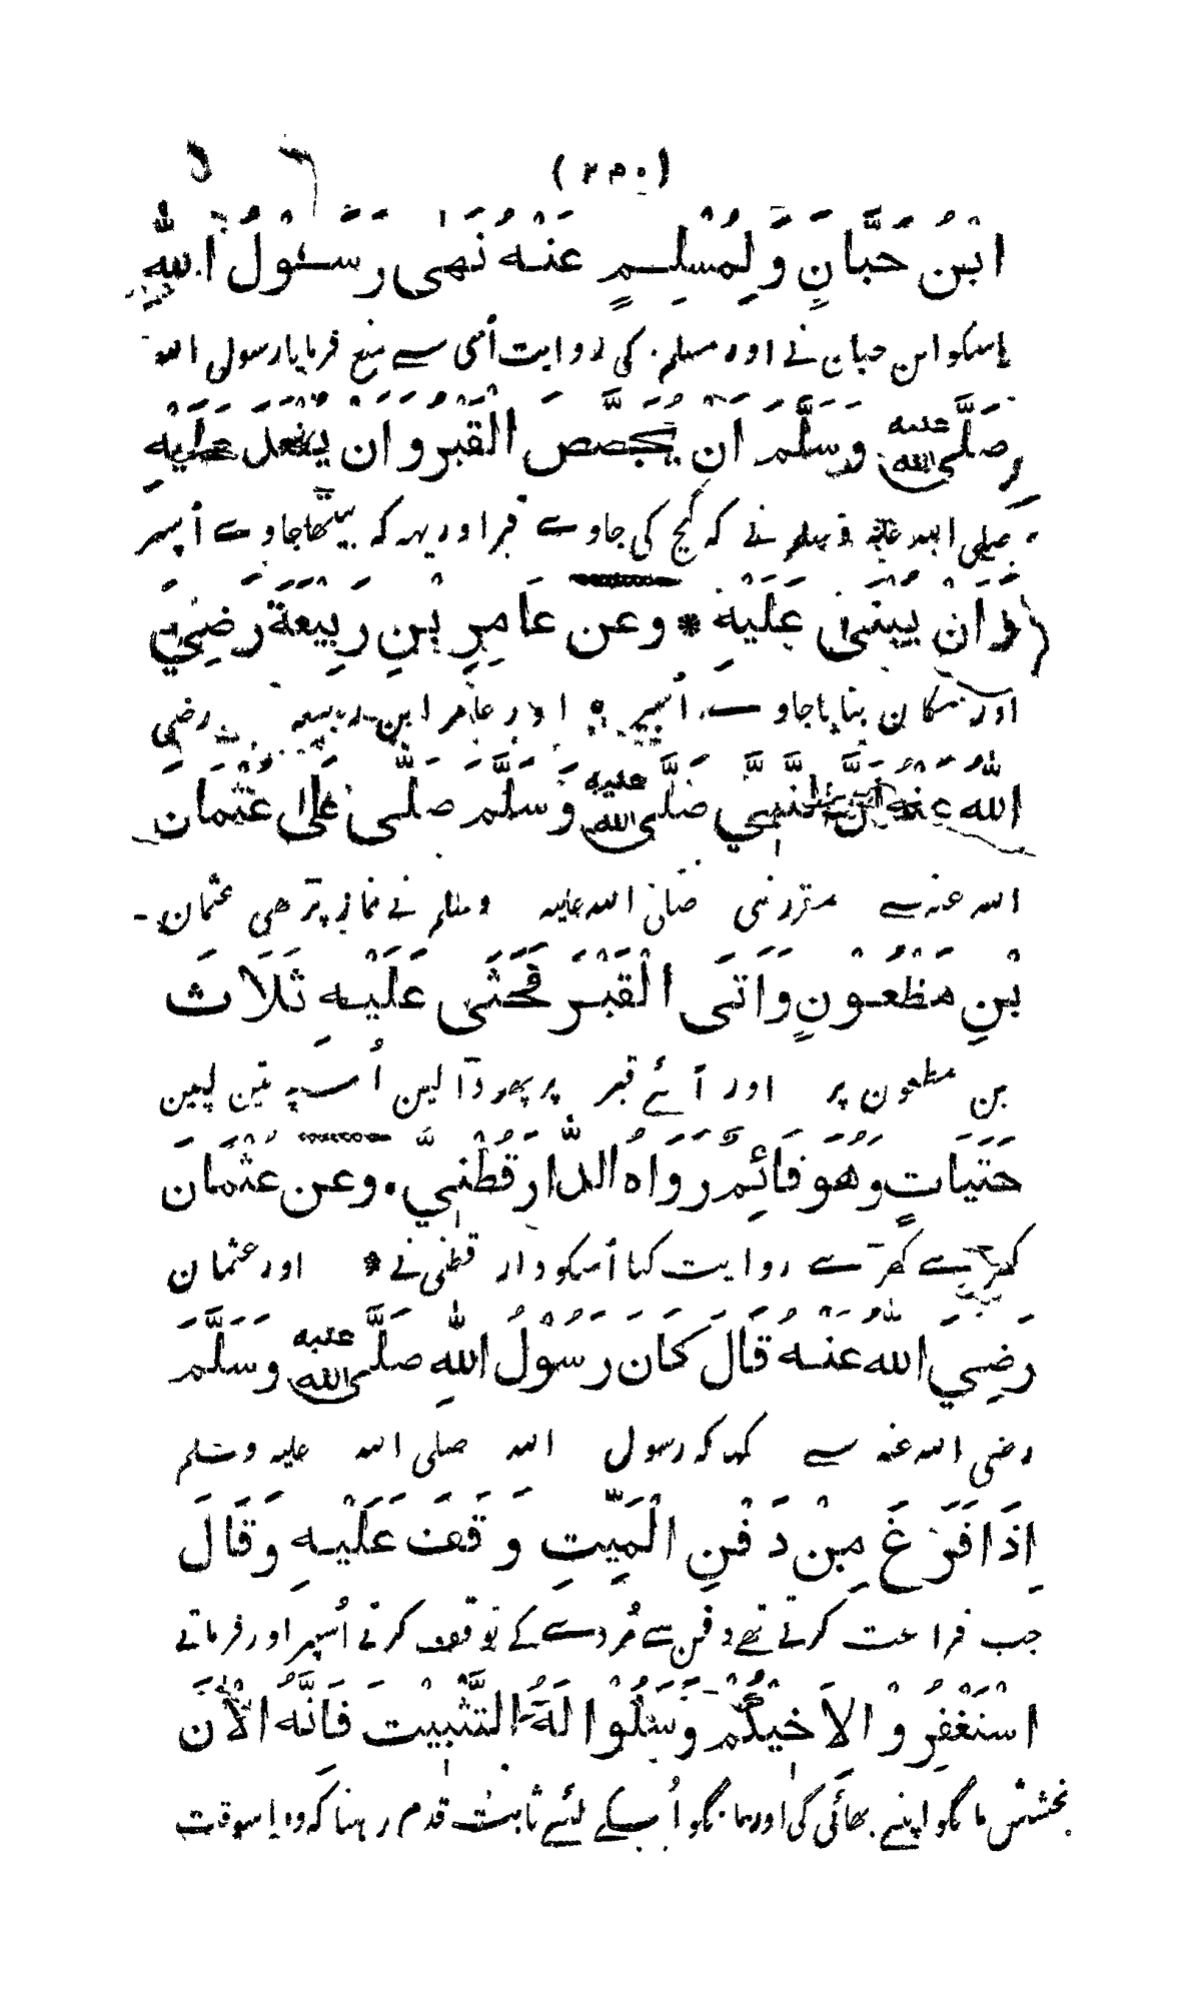 (۲۳۰)
ابْنُ حَبَّانِ وَلِمُسْلِمٍ عَنْهُ نَهٰى رَسُوْلُ اللّٰهِ
یا سکو ابن حبان نے اور مسلم کی روایت اُسی سے منع فرمایا رسول الله
صَلَّى اللّٰهُ عَلَيْهِ وَسَلَّمَ اَنْ يُّجَصَّصَ الْقَبْرُ وَاَنْ يُّقْعَدَ عَلَيْهِ
صلی الله علیه وسلم نے کہ گچ کی جاوے قبر اور یہہ کہ بیٹھا جاوے اُسپر
وَاَنْ يُّبْنٰى عَلَيْهِ * وَعَنْ عَامِرِ بْنِ رَبِيْعَةَ رَضِيَ
اور مکان بنایا جاوے اُسپر * اور عامر ابن ربیعه رضی
اللّٰهُ عَنْهُ اَنَّ النَّبِيَّ صَلَّى اللّٰهُ عَلَيْهِ وَسَلَّمَ صَلّٰى عَلٰى عُثْمَانَ
الله عنه سے مقرر نبی صلی الله علیه وسلم نے نماز پڑھی عثمان
بْنِ مَظْعُوْنٍ وَاَتَى الْقَبْرَ فَحَثٰى عَلَيْهِ ثَلَاثَ
بن مظعون پر اور آئے قبر پر پھر ڈالیں اُسپہ تین لپین
حَثَيَاتٍ وَهُوَ قَائِمٌ رَوَاهُ الدَّارَقُطْنِيُّ. وَعَنْ عُثْمَانَ
کھڑے کھڑے روایت کیا اُسکو دار قطنی نے * اور عثمان
رَضِيَ اللّٰهُ عَنْهُ قَالَ كَانَ رَسُوْلُ اللّٰهِ صَلَّى اللّٰهُ عَلَيْهِ وَسَلَّمَ
رضی الله عنه سے کہا کہ رسول الله صلی الله علیه وسلم
اِذَا فَرَغَ مِنْ دَفْنِ الْمَيِّتِ وَقَفَ عَلَيْهِ وَقَالَ
جب فراغت کرتے تھے دفن سے مُردے کے توقف کرتے اُسپر اور فرماتے
اسْتَغْفِرُوْا لِاَخِيْكُمْ وَسَلُوْا لَهُ التَّثْبِيْتَ فَاِنَّهُ الْاٰنَ
بخشش مانگو اپنے بھائی کی اور مانگو اُسکے لئے ثابت قدم رہنا کہ وہ اِسوقت